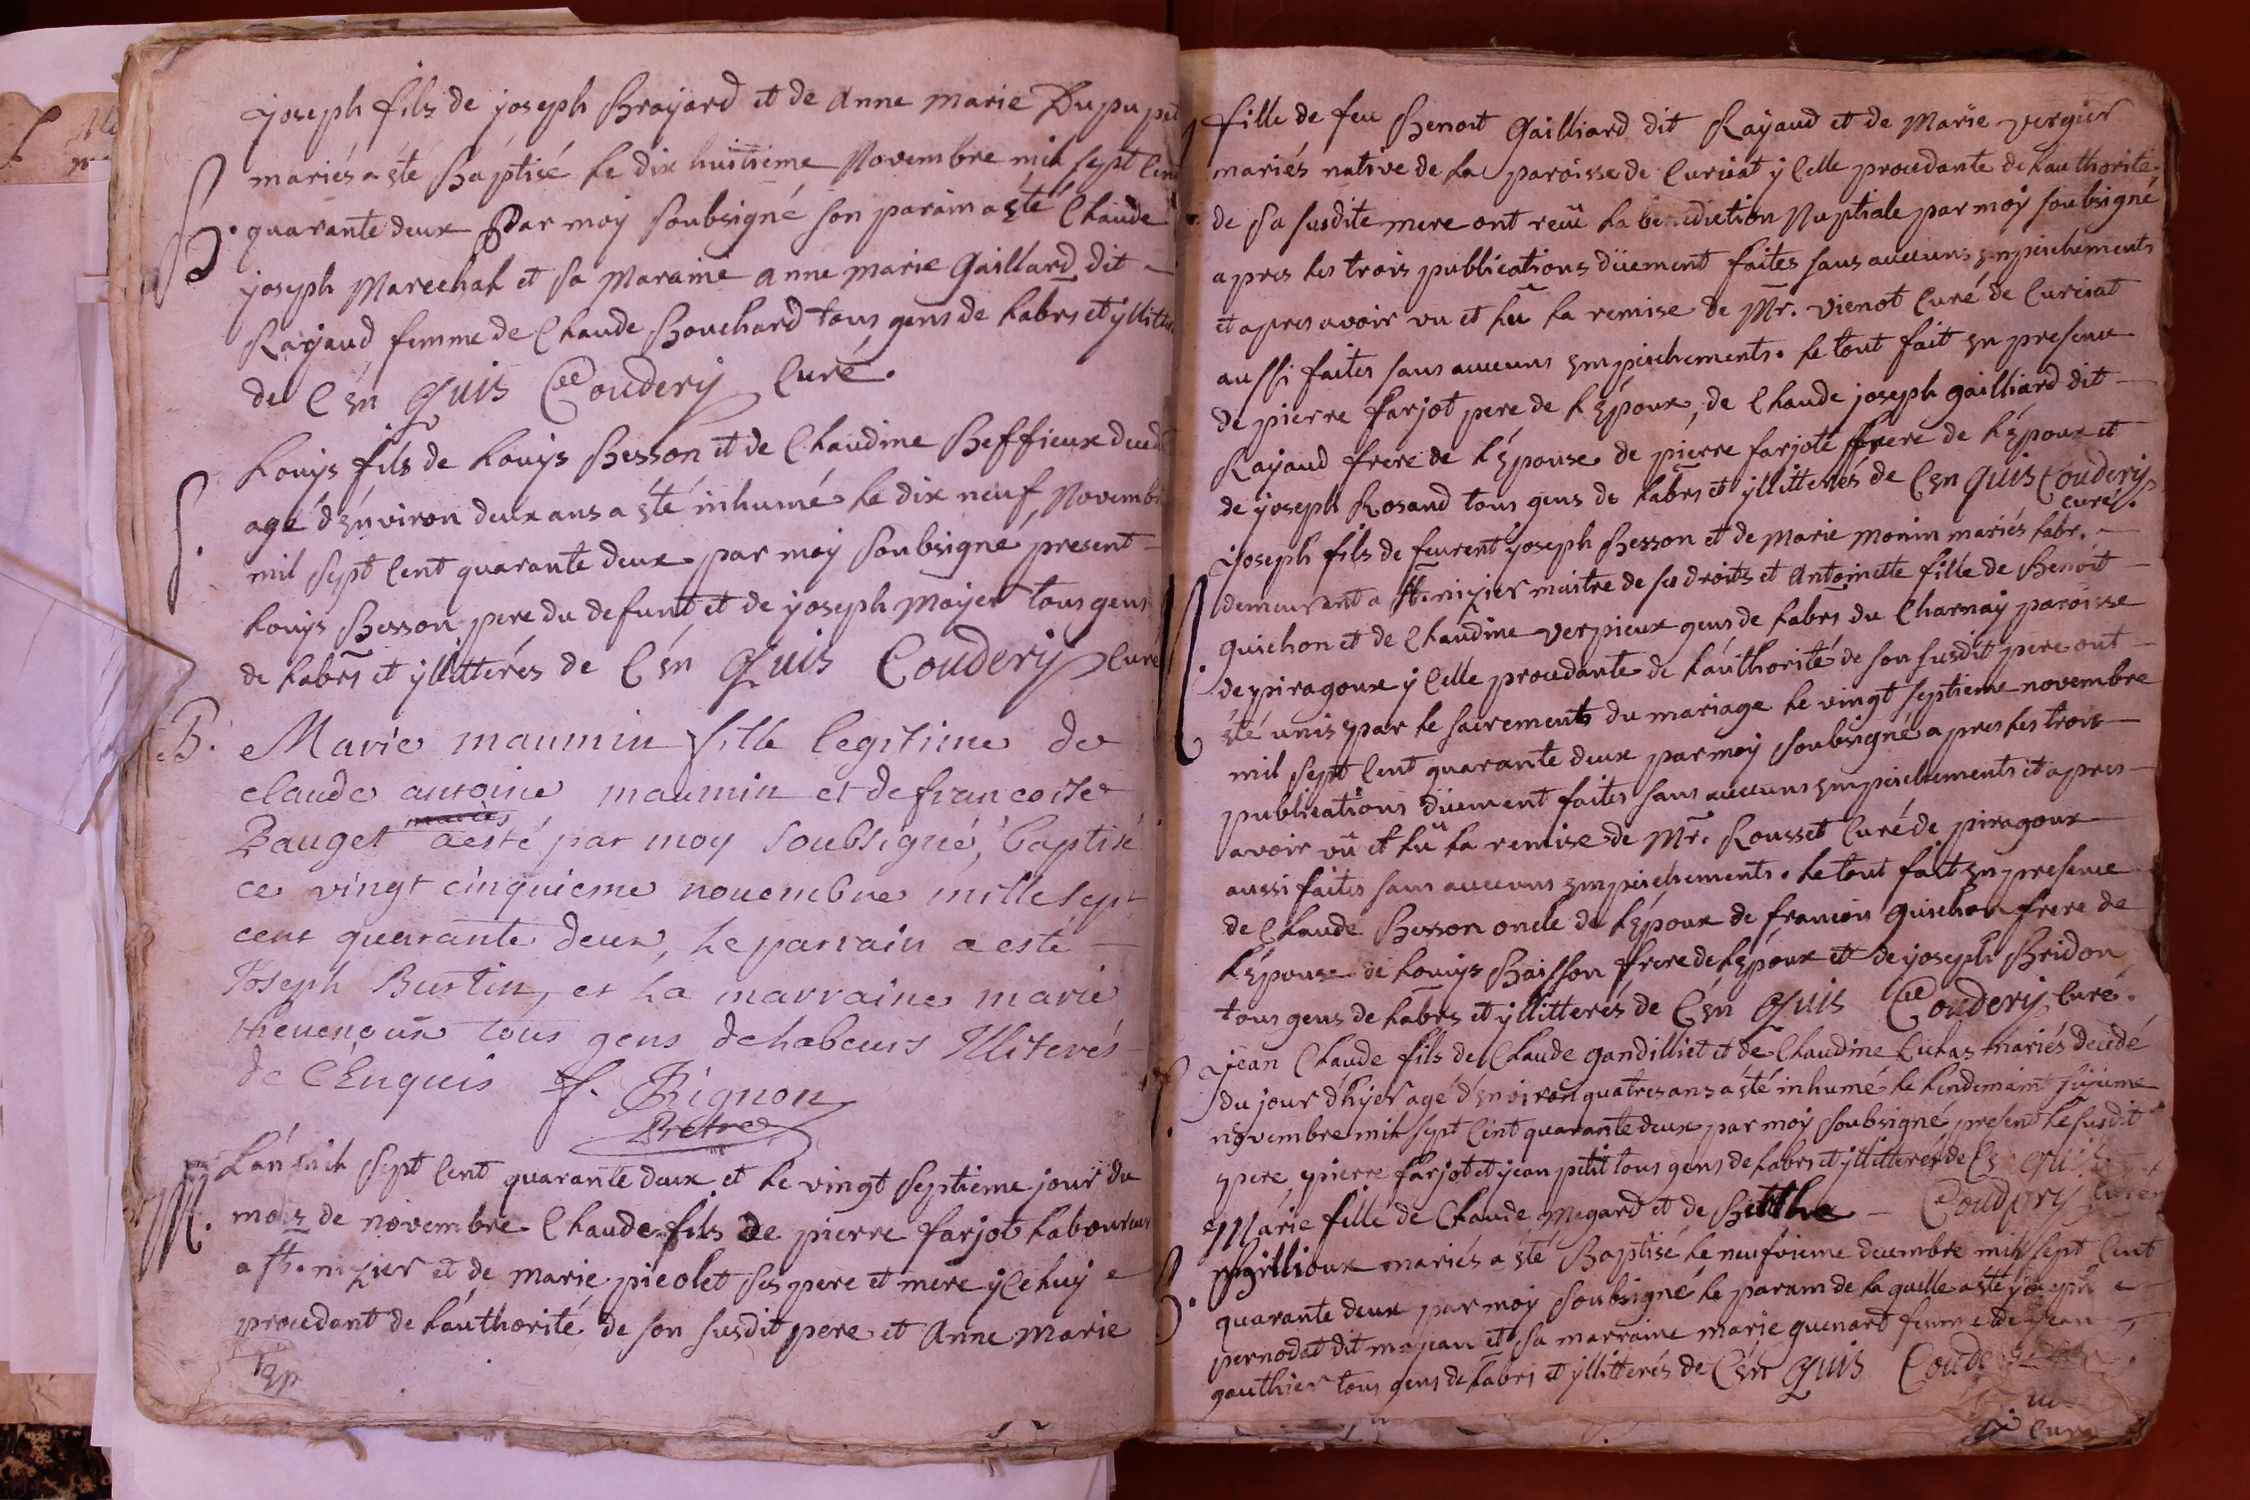 Joseph fils de joseph Brayard et de Anne Marie Dupupet
mariés a êté Baptisé le dix huitieme Novembre mil sept Cent
B. quarante deux Par moy soubsigné son parain a êté Claude
joseph Marechal et sa Maraine anne marie Gaillard dit -
Rayaud femme de Claude Bouchard tous gens de labrs et yllitte
de C en Quis Coudery Curé.
Louys fils de Louys Besson et de Claudine Beffieux
agé d'Environ deux ans a êté inhumé le dix neuf Novembre
S. mil sept Cent quarante deux par moy soubsigné, present -
Louys Besson pere du defunt, et de joseph Moyer tous gens
de labrs et yllitterés de C en Quis Coudery Curé
B. Marie maumin fille legitime de
claude antoine maumin et de francoise
mariés
Bauget a esté par moy soubsigné, baptisé
ce vingt cinquieme nouembre mille sept
cent quarante deux, le parrain a esté -
Joseph Burtin, et la marraine marie
theuenoux tous gens de labeurs Illiterés
de C Enquis f. Bignon
Pretre
L'an mil sept Cent quarante deux et le vingt septieme jour du
M. mois de novembre Claude fils de pierre farjot laboureur
a St. nizier et de marie picolet ses pere et mere yCeluy
procedant de l'authorité de son susdit pere et Anne Marie
fille de feu Benoit Gailliard dit Rayaud et de Marie vergier
mariés native de la paroisse de Curciat yCelle procedante de l'authorité
de sa susdite mere ont reçu la benediction Nuptiale par moy soubsigné
apres les trois publications düement faites sans aucuns Empechements
et apres avoir vu et lû la remise de Mr. vienot Curé de Curciat
aussi faites sans aucuns Empechements. le tout fait En presence
de pierre farjot pere de l'Epoux, de Claude joseph gailliard dit -
Rayaud frere de l'Epouse de pierre farjot frere de l'Epoux et
de joseph Rosand tous gens de labrs et yllitterés de C en Quis Coudery
curé.
Joseph fils de joseph Besson et de Marie Monin mariés labr. -
demeurant a St. nizier maitre de ses droits et Antoinette fille de Benoit -
guichon et de Claudine verpieux gens de labrs du Charnay paroisse
de piragoux yCelle procedante de l'authorité de son susdit pere ont -
êté unis par le sacrements du mariage le vingt septieme novembre
mil sept Cent quarante deux par moy soubsigné apres les trois -
publications düement faites sans aucuns Empechements et apres -
avoir vû et lû la remise de Mr. Rousset Curé de piragoux
aussi faites sans aucuns Empechements. le tout fait En presence
de Claude Besson oncle de l'Epoux de francois guichon frere de
l'Epouse de Louys Baisson frere de l'Epoux et de joseph Bridon
tous gens de labrs et yllitterés de C en Quis Coudery Curé.
S. Jean Claude fils de Claude gandilliet et de Claudine Luchas mariés decedé
du jour d'hyer agé d'Environ quatres ans a êté inhumé le lendemain
novembre mil sept Cent quarante deux par moy soubsigné present le susdit
pere, pierre farjot et jean petit tous gens de labrs et yllitterés de C en quis
Marie fille de Claude Megard et de - Coudery Curé
mariés a êté Baptisé le neufvieme decembre mil sept Cent
B. quarante deux par moy soubsigné le parain de laquelle a êté joseph
pernodat dit et sa marraine marie guenart femme de jean
gauthier tous gens de labrs et yllitterés de C en Quis
Curé